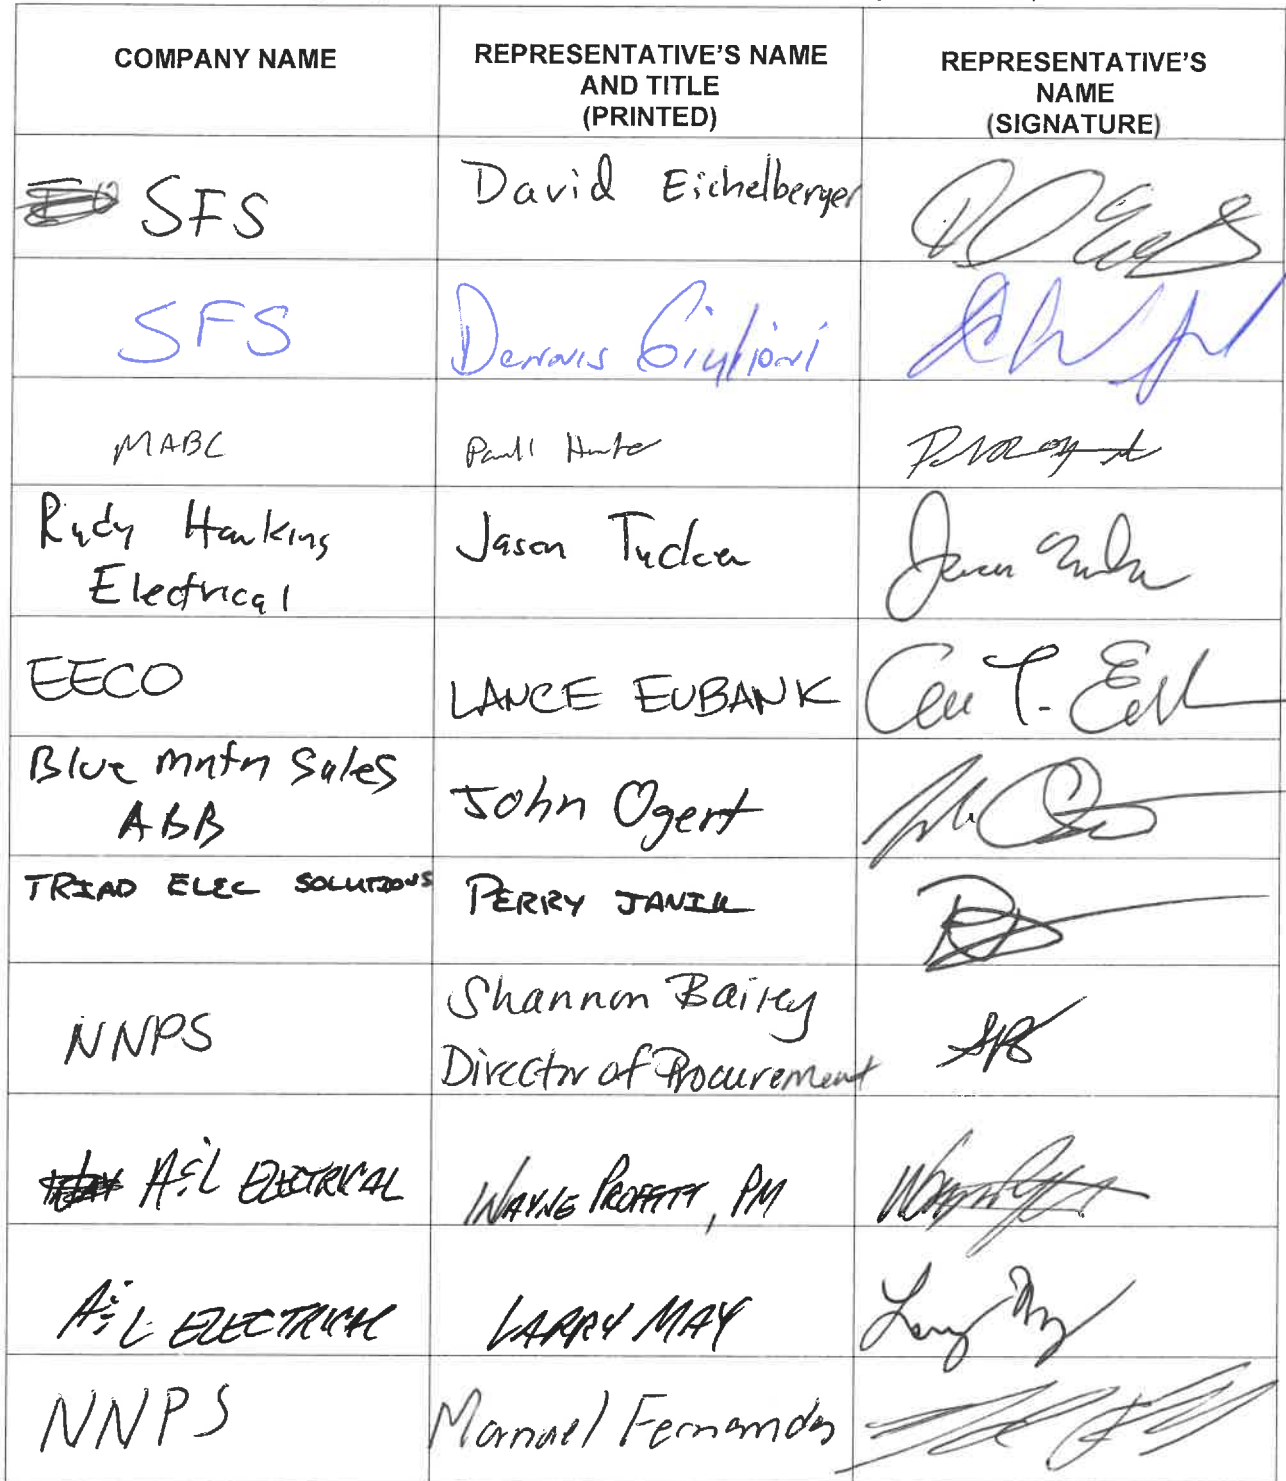 COMPANY NAME
REPRESENTATIVE'S NAME
AND TITLE
(PRINTED)
REPRESENTATIVE'S
NAME
(SIGNATURE)
SFS
David Eichelberger
SFS
Dennis Giulioni
MABC
Paul Hunter
Rudy Hawkins
Electrical
Jason Tucker
EECO
LANCE EUBANK
Blue mntn Sales
ABB
John Ogert
TRIAD ELEC SOLUTIONS
PERRY JANIK
NNPS
Shannon Bailey
Director of Procurement
A&L ELECTRICAL
WAYNE PROFFITT, PM
A&L ELECTRICAL
LARRY MAY
Larry May
NNPS
Manuel Fernandes